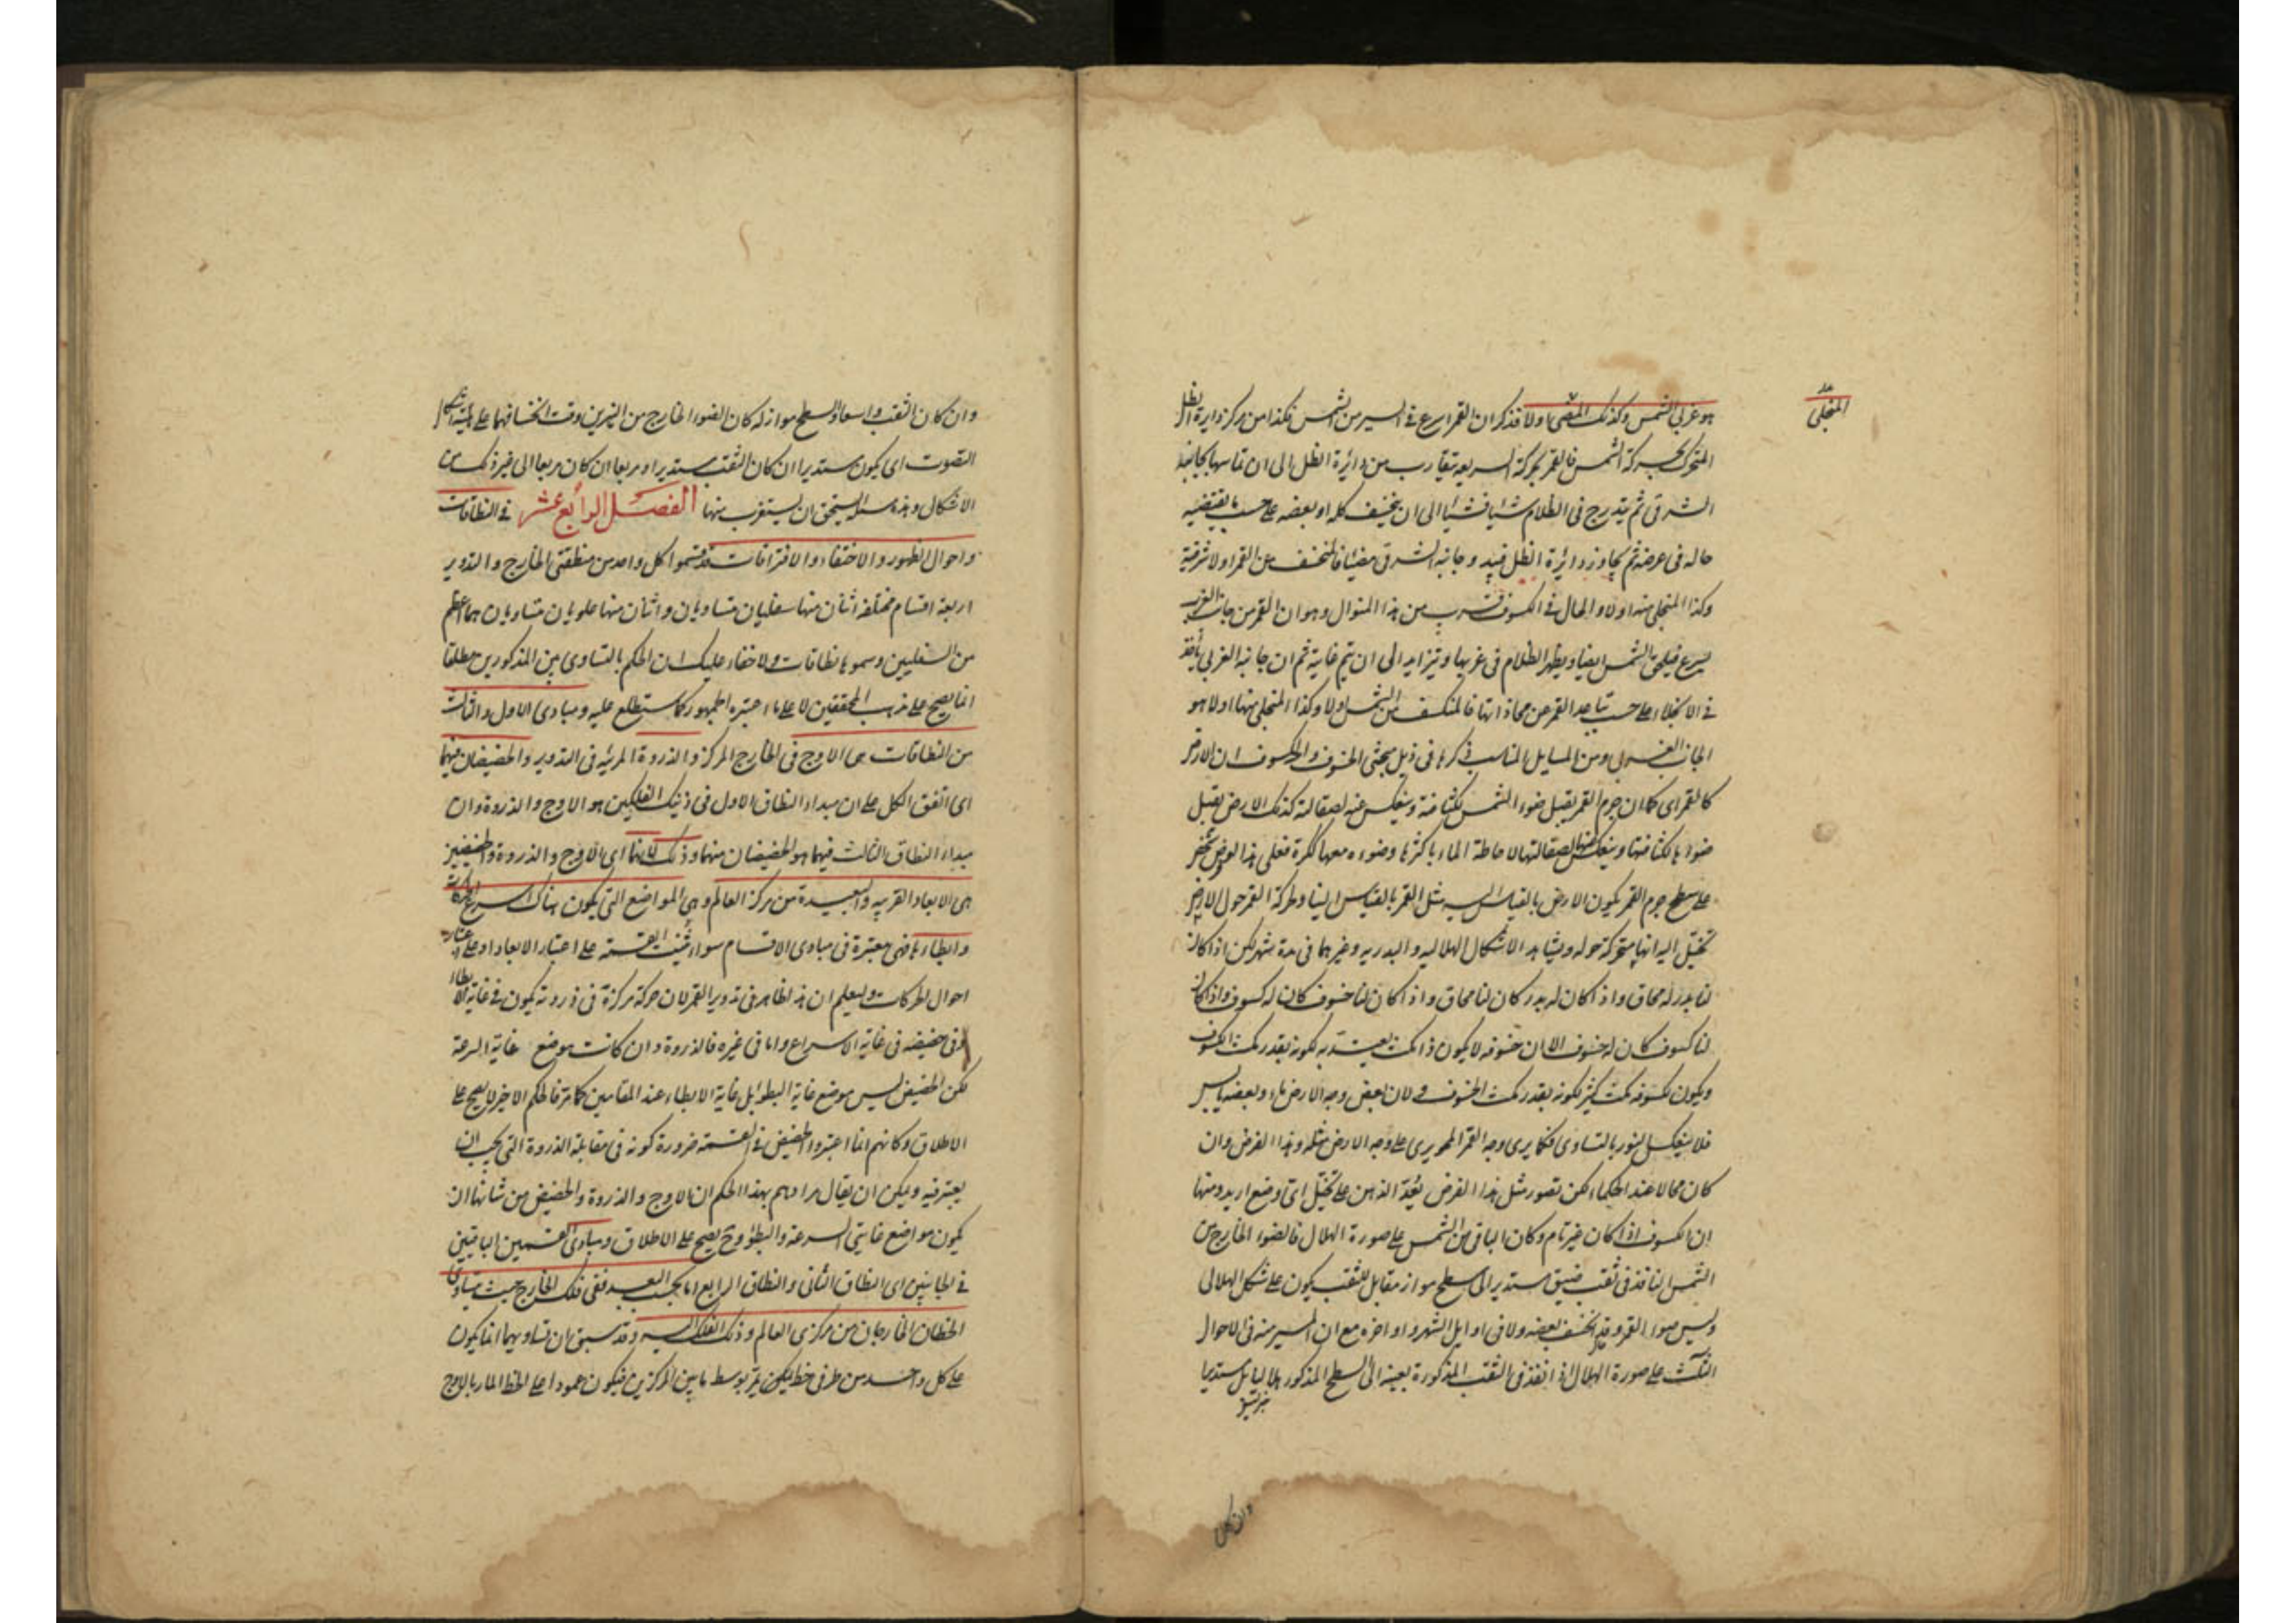 هو غربى الشمس وكذلك ولا قد ذكر ان القمر اسرع فى السير من الشمس فكذا من مركز دايرة الظل
المنجلى
المتحرك بحركة الشمس فالقمر بحركته السريعة يتقارب من دائرة الظل الى ان تماسها بجانبه
الشرقى ثم يتدرج فى الظلام شيئا فشيئا الى ان ينخسف كله او بعضه على حسب ما يقتضيه
حاله فى عرضه ثم يجاوز دائرة الظل وجانبه الشرقى مضيئا فالمنخسف من القمر اولا شرقيه
وكذا المنجلى منه اولا والحال فى الكسوف قريب من هذا المنوال وهو ان القمر من جانب الغرب
يسرع فيلحق بالشمس ايضا ويظهر الظلام فى غربيها ويتزايد الى ان يتم غايته ثم ان جانبه الغربى يأخذ
فى الانجلاء على حسب تباعد القمر عن محاذاتها فالمنكسف من الشمس اولا وكذا المنجلى منها اولا هو
الجانب الغربى ومن المسايل المناسب ذكرها فى ذيل مبحثى الخسوف والكسوف ان الارض
كالقمر اى كما ان جرم القمر يقبل ضوء الشمس لكثافته وينعكس عنه لصقالته كذلك الارض تقبل
ضوءها لكثافتها وينعكس عنها لصقالتها لاحاطة الماء باكثرها وضوءه معها ككرة فعلى هذا لو فرض شخص
على سطح جرم القمر يكون الارض بالقياس اليه مثل القمر بالقياس الينا ولحركة القمر حول الارض
تخيل اليه انها متحركة حوله ويشاهد الاشكال الهلالية والبدرية وغيرهما فى مدة شهر لكن اذا كان
لنا بدر له محاق واذا كان له بدر كان لنا محاق واذا كان لنا خسوف كان له كسوف واذا كان
لنا كسوف كان له خسوف الا ان خسوفه لا يكون ذا مكث يعتد به لكونه بقدر مكث الكسوف
ويكون لكسوفه مكث كثير لكونه بقدر مكث الخسوف ولان بعض وجه الارض ماء وبعضه يابس
فلا ينعكس النور بالتساوى فكما يرى وجه القمر المحو يرى على وجه الارض مثله وهذا الفرض وان
كان محالا عند الحكماء لكن تصور مثل هذا الفرض يعد الذهن على تخيل اى وضع اريد ومنها
ان الكسوف اذا كان غير تام وكان الباقى من الشمس على صورة الهلال فالضوء الخارج من
الشمس النافذ فى ثقب ضيق مستدير الى سطح مواز مقابل للثقب يكون على شكل الهلالى
وليس ضوء القمر وقت انخسف بعضه ولا فى اوايل الشهر واواخره مع ان المستنير منه فى الاحوال
الثلث على صورة الهلال اذا نفذ فى الثقب المذكورة بعينه الى السطح المذكور هلاليا بل مستديرا
وان كان
وان كان الثقب واسعا والسطح مواز له كان الضوء الخارج من النيرين وقت انخسافهما على هيئة اشكال
الثقوب اى يكون مستديرا ان كان الثقب مستديرا ومربعا ان كان مربعا الى غير ذلك من
الاشكال وهذه مسئلة يستحق ان يستغرب منها الفصل الرابع عشر فى النطاقات
واحوال الظهور والاختفاء والاقترانات قد قسموا كل واحد من منطقتى الخارج والتدوير
اربعة اقسام مختلفة اثنان منها سفليان متساويان واثنان منها علويان متساويان هما اعظم
من السفليين وسموها نطاقات ولا خفاء عليك ان الحكم بالتساوى بين المذكورين مطلقا
انما يصح على مذهب المحققين لا على ما اعتبره الجمهور كما ستطلع عليه ومبادى الاول والثالث
من النطاقات هى الاوج فى الخارج المركز والذروة المرئية فى التدوير والحضيضان فيهما
اى اتفق الكل على ان مبداء النطاق الاول فى ذينك الفلكين هو الاوج والذروة وان
مبداء النطاق الثالث فيهما هو الحضيضان منهما وذلك لانها اى الاوج والذروة والحضيضين
هى الابعاد القريبة والبعيدة من مركز العالم وهى المواضع التى يكون هناك اسرع الحركات
وابطاءها فهى معتبرة فى مبادى الاقسام سواء بنيت القسمة على اعتبار الابعاد او على اعتبار
احوال الحركات وليعلم ان هذا ظاهر فى تدوير القمر لان حركة مركزه فى ذروته يكون فى غاية الابطاء
وفى حضيضه فى غاية الاسراع واما فى غيره فالذروة وان كانت موضع غاية السرعة
لكن الحضيض ليس موضع غاية البطؤ بل غاية الابطاء عند المقامين كما مر فالحكم الاخير لا يصح على
الاطلاق وكانهم انما اعتبروا الحضيض فى القسمة ضرورة كونه فى مقابلة الذروة التى يجب ان
يعتبر فيه ويمكن ان يقال مرادهم بهذا الحكم ان الاوج والذروة والحضيض من شانها ان
يكون مواضع غايتى السرعة والبطؤ وح يصح على الاطلاق ومبادى القسمين الباقيين
فى الجانبين اى النطاق الثانى والنطاق الرابع اما بحسب البعد ففى فلك الخارج حيث يتساوى
الخطان الخارجان من مركزى العالم وذلك الفلك اليه وقد سبق ان تساويهما انما يكون
على كل واحد من طرفى خط يمر بوسط ما بين المركزين فيكون عمودا على الخط المار بالاوج